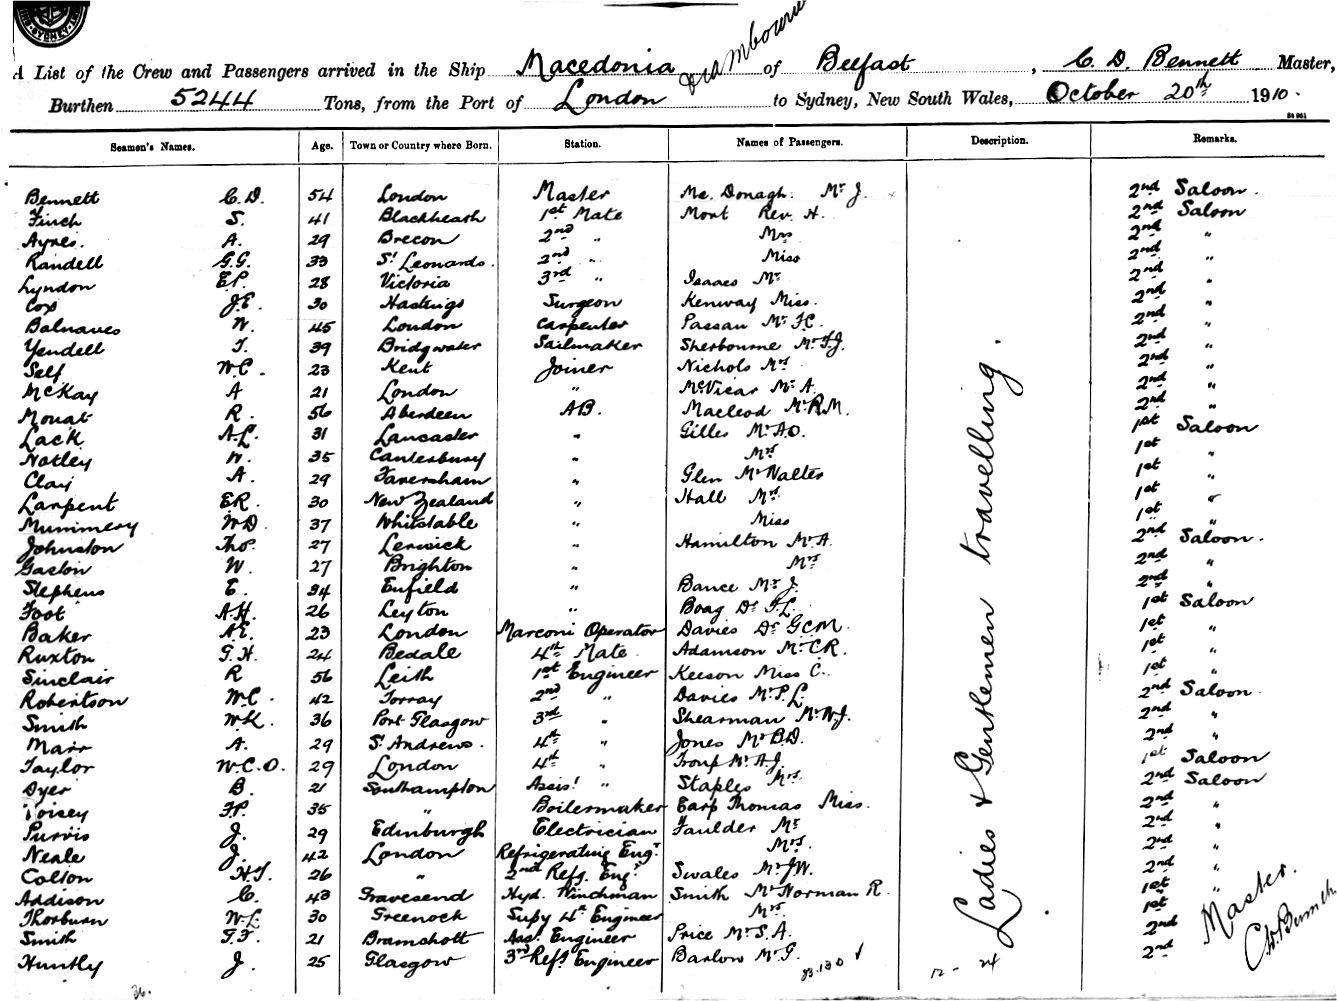 SYDNEY
via Melbourne
A List of the Crew and Passengers arrived in the Ship Macedonia of Belfast, C. D. Bennett Master,
Burthen 5244 Tons, from the Port of London to Sydney, New South Wales, October 20th 1910.
Seamen's Names. Age. Town or Country where Born. Station. Names of Passengers. Description. Remarks.
Bennett C. D. 54 London Master Mc. Donagh. Mr J. 2nd Saloon.
Finch S. 41 Blackheath 1st Mate Mont Rev. H. 2nd Saloon
Ayres. A. 29 Brecon 2nd " Mrs 2nd "
Randell G.G. 33 St Leonards. 2nd " Miss 2nd "
Lyndon E.P. 28 Victoria 3rd " Isaacs Mr 2nd "
Cox J.E. 30 Hastings Surgeon Kenway Miss. 2nd "
Balnaves W. 45 London Carpenter Passau Mr F.C. 2nd "
Yendell T. 39 Bridgwater Sailmaker Sherbourne Mr F.J. 2nd "
Self W.C. 23 Kent Joiner Nichols Mrs 2nd "
McKay A 21 London " McVicar Mr A. 2nd "
Mouat R. 56 Aberdeen AB. Macleod Mr R.M. 2nd "
Lack A.L. 31 Lancaster " Gilles Mr A.O. 1st Saloon
Notley W. 35 Canterbury " Mrs 1st "
Clay A. 29 Faversham " Glen Mr Walter 1st "
Larpent E.R. 30 New Zealand " Hall Mrs 1st "
Mummery W.D. 37 Whitstable " Miss 1st "
Johnston Tho. 27 Lerwick " Hamilton Mr A. 2nd Saloon.
Gaston W. 27 Brighton " Mrs 2nd "
Stephens E. 34 Enfield " Bance Mr J. 2nd "
Foot A.H. 26 Leyton " Boag Dr F.L. 1st Saloon
Baker A.E. 23 London Marconi Operator Davies Dr G.C.M. 1st "
Ruxton G.H. 24 Bedale 4th Mate Adamson Mr C.R. 1st "
Sinclair R 56 Leith 1st Engineer Keeson Miss C. 1st "
Robertson W.C. 42 Torray 2nd " Davies Mr P.L. 2nd Saloon.
Smith W.K. 36 Port Glasgow 3rd " Shearman Mr W.J. 2nd "
Marr A. 29 St Andrews. 4th " Jones Mr B.D. 2nd "
Taylor W.C.O. 29 London 4th " Troup Mr A.J. 1st Saloon
Dyer B. 21 Southampton Assist " Staples Mrs 2nd Saloon
Voisey F.P. 35 " Boilermaker Earp Thomas Miss. 2nd "
Purvis J. 29 Edinburgh Electrician Faulder Mr 2nd "
Neale J. 42 London Refrigerating Engr Mrs. 2nd "
Colton H.T. 26 " 2nd Refg. Engr Swales Mr J.W. 2nd "
Addison C. 43 Gravesend Hyd. Winchman Smith Mr Norman R. 1st "
Thorburn W.L. 30 Greenock Supy 4th Engineer Mrs. 1st
Smith G.F. 21 Bramshott Asst. Engineer Price Mr S. A. 2nd
Huntly J. 25 Glasgow 3rd Refg Engineer Barlow Mr G. 2nd
Ladies & Gentlemen travelling.
Master.
C.D. Bennett
36.
12 - 24